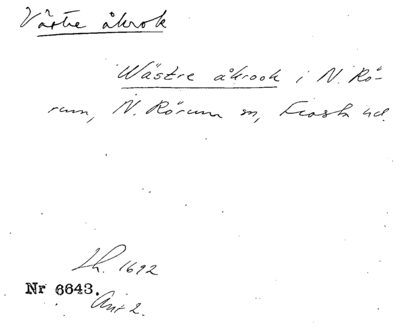 Västre åkrok
Wästre åkrook i N. Rö-
rum, N. Rörum sn, Frosta hd.
Lh. 1692
Nr 6643.
Ant 2.